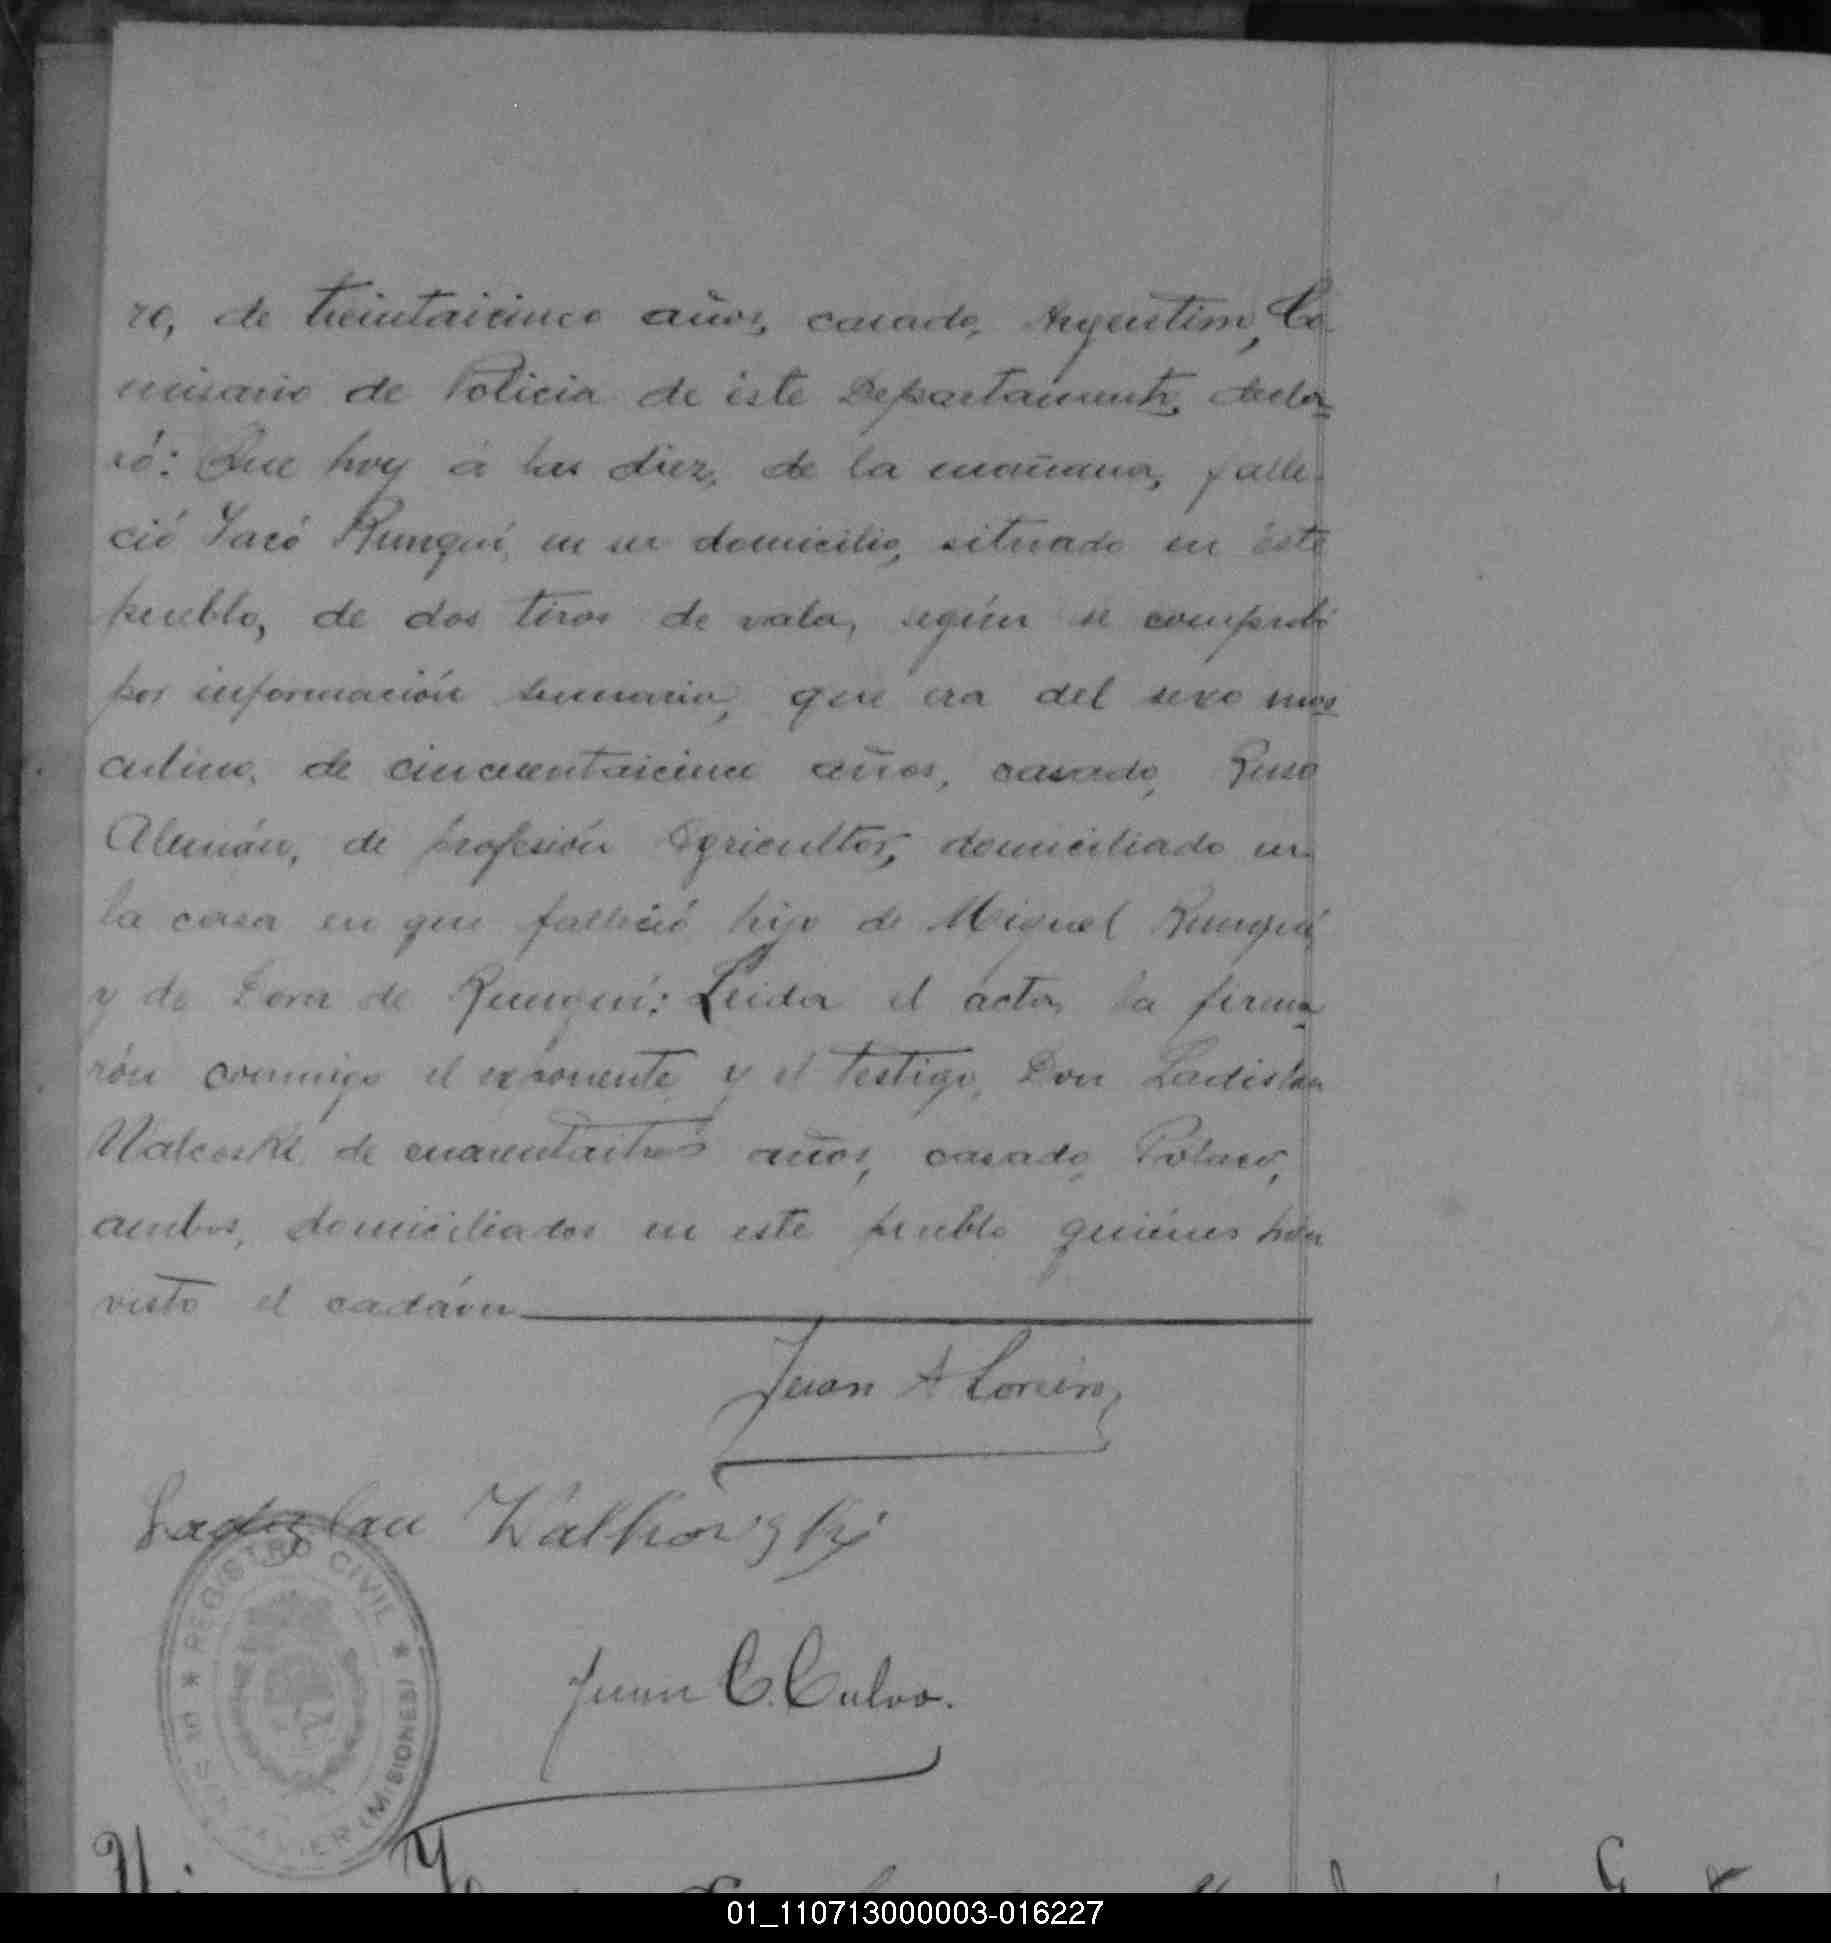 ro, de treintaicinco años, casado, Argentino, Co
misario de Policia de éste Departamento, decla=
ró: Que hoy á las diez, de la mañana, falle-
ció Jacó Runquí, en su domicilio, situado en éste
pueblo, de dos tiros de vala, según se comprobó
por información sumaria, que era del sexo mas
culino, de cincuentaicinco años, casado, Ruso
Alemán, de profesión Agricultor, domiciliado en
la casa en que falleció hijo de Miguel Runquí
y de Dora de Runquí: Leida el acta, la firma
rón conmigo el exponente y el testigo, Don Ladislau
Walcoski de cuarentaitres años, casado, Polaco,
ambos, domiciliados en este pueblo quiénes hán
visto el cadáver
Juan A
Ladislau Walkowski
Juan C. Calvo.
REGISTRO CIVIL
(MISIONES)
01_110713000003-016227